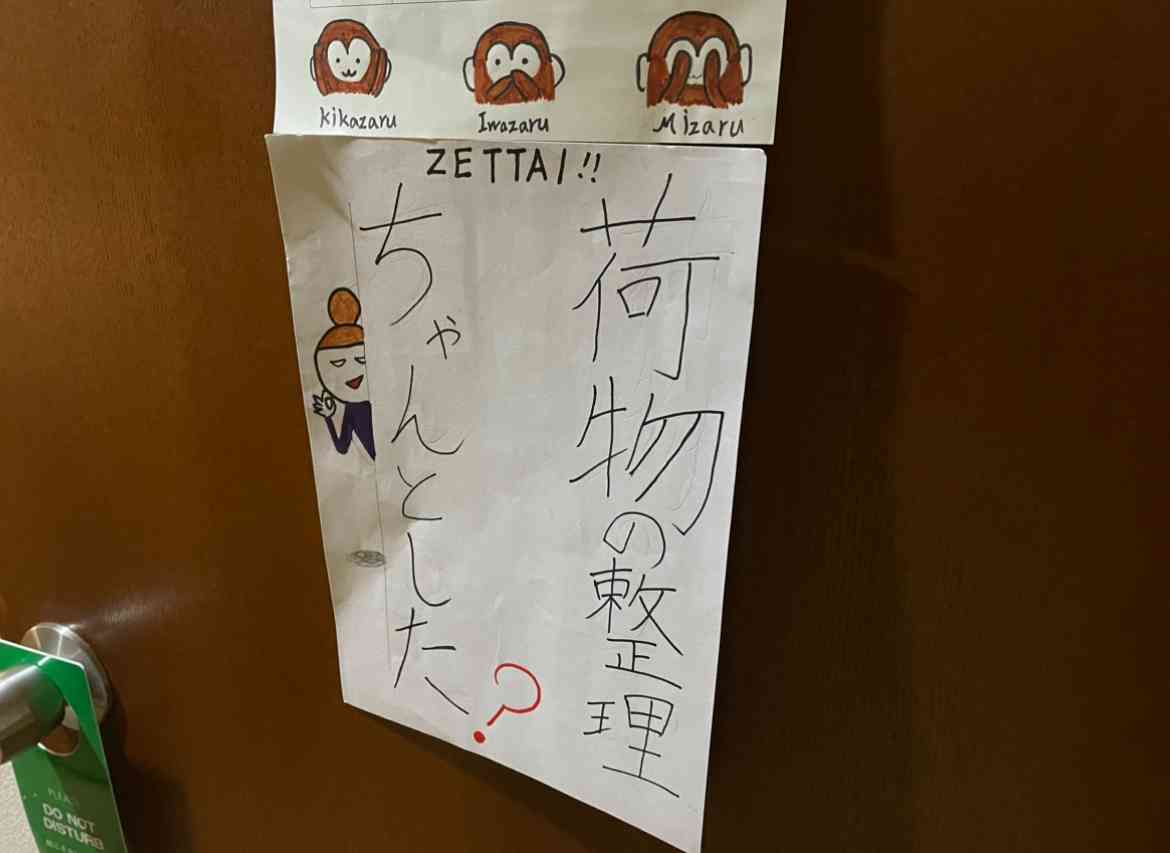 kikazaru
Iwazaru
Mizaru
ZETTAI!!
荷物の整理
ちゃんとした?
DO NOT
DISTURB